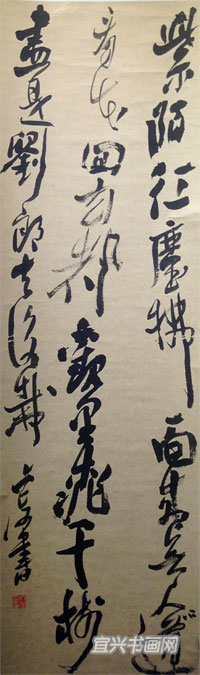 紫陌紅塵拂面來無人不道
看花回玄都觀里桃千樹
盡是劉郎去後栽
書
宜兴书画网